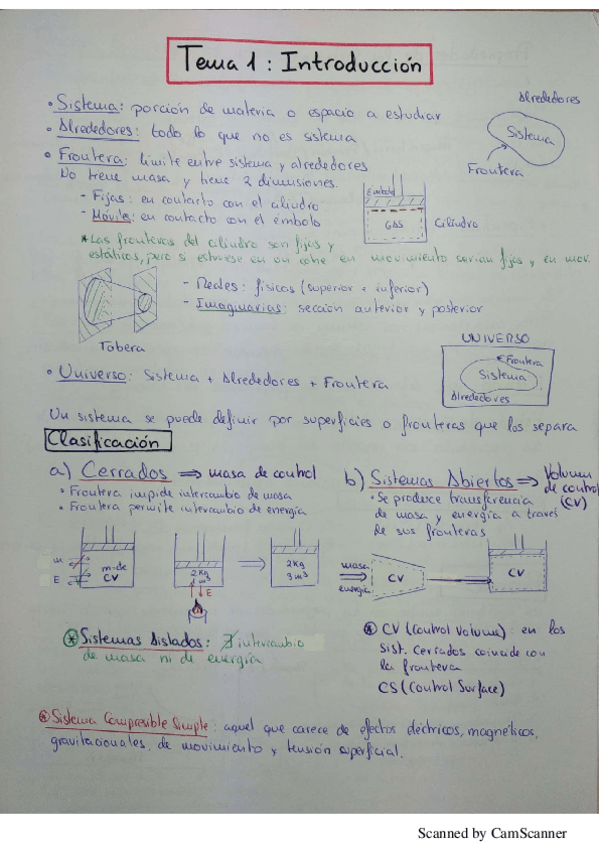 Tema 1: Introducción
• Sistema: porción de materia o espacio a estudiar
• Alrededores: todo lo que no es sistema
• Frontera: límite entre sistema y alrededores
No tiene masa y tiene 2 dimensiones.
- Fijas: en contacto con el cilindro
- Móviles: en contacto con el émbolo
Alrededores
Sistema
Frontera
Émbolo
GAS
Cilindro
* Las fronteras del cilindro son fijas y
estáticas, pero si estuviese en un coche en movimiento serían fijas y en mov.
- Reales: físicas (superior e inferior)
- Imaginarias: sección anterior y posterior
Tobera
UNIVERSO
Frontera
Sistema
Alrededores
• Universo: Sistema + Alrededores + Frontera
Un sistema se puede definir por superficies o fronteras que los separa
Clasificación
a) Cerrados ⇒ masa de control
• Frontera impide intercambio de masa
• Frontera permite intercambio de energía
b) Sistemas Abiertos ⇒ Volumen de control (CV)
• Se produce transferencia
de masa y energía a través
de sus fronteras
m
E
m-de
CV
2kg
m³
E
2kg
3m³
masa
energía
CV
CV
* Sistemas Aislados: ∄ intercambio
de masa ni de energía
* CV (Control Volume): en los
sist. Cerrados coincide con
la frontera
CS (Control Surface)
* Sistema Compresible Simple: aquel que carece de efectos eléctricos, magnéticos,
gravitacionales, de movimiento y tensión superficial.
Scanned by CamScanner